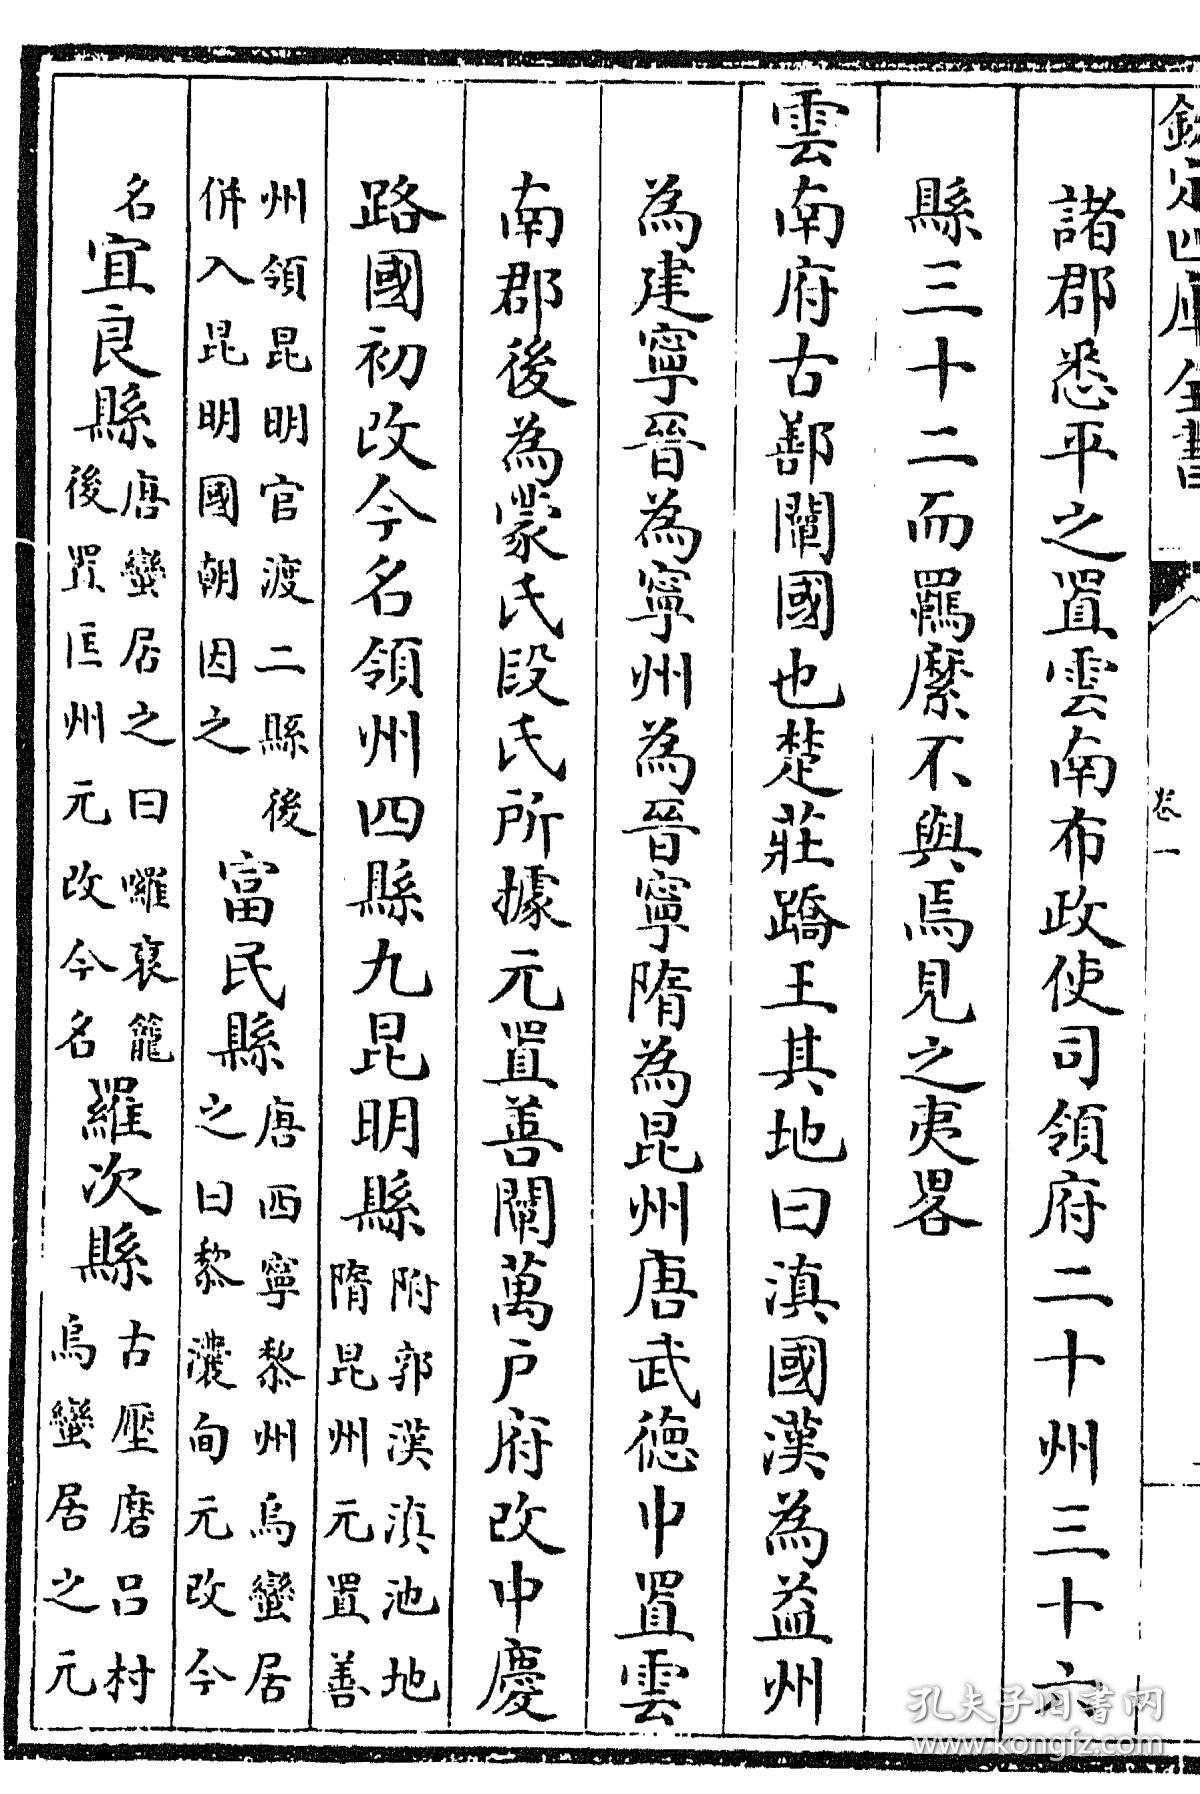 欽定四庫全書
卷一
諸郡悉平之置雲南布政使司領府二十州三十六
縣三十二而羈縻不與焉見之夷畧
雲南府古鄯闡國也楚莊蹻王其地曰滇國漢為益州
為建寧晉為寧州為晉寧隋為昆州唐武德中置雲
南郡後為蒙氏段氏所據元置善闡萬戶府改中慶
路國初改今名領州四縣九昆明縣附郭漢滇池地隋昆州元置善
州領昆明官渡二縣後併入昆明國朝因之富民縣唐西寧黎州烏蠻居之曰黎瀼甸元改今
名宜良縣唐蠻居之曰囉裒籠後置匡州元改今名羅次縣古壓磨呂村烏蠻居之元
孔夫子旧書网
www.kongfz.com